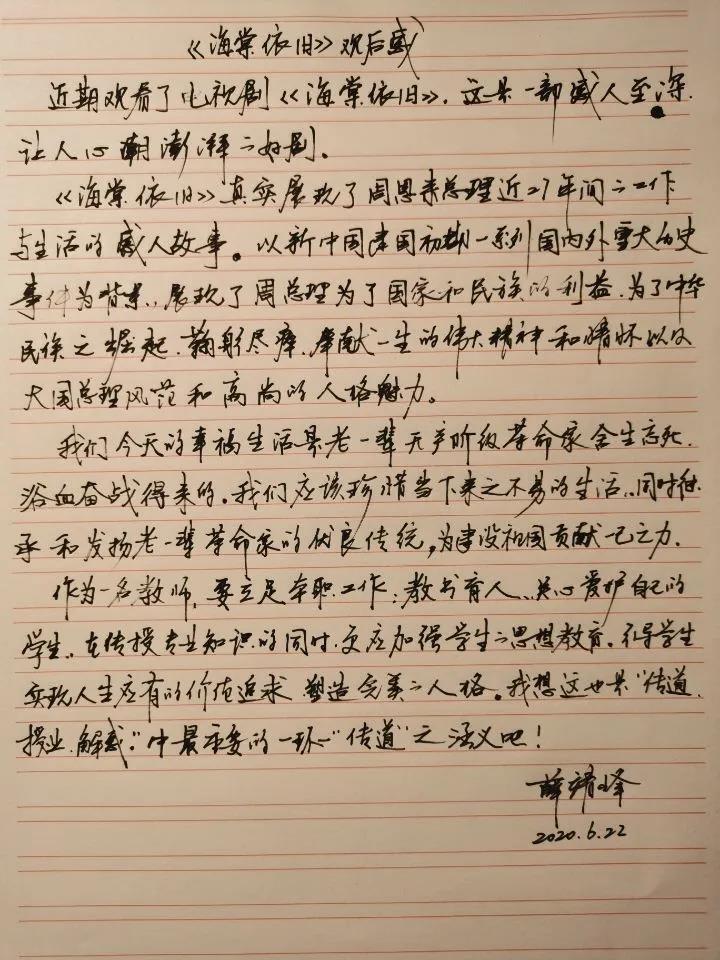 《海棠依旧》观后感
近期观看了电视剧《海棠依旧》，这是一部感人至深、
让人心潮澎湃的好剧。
《海棠依旧》真实展现了周恩来总理近27年间的工作
与生活的感人故事。以新中国建国初期一系列国内外重大历史
事件为背景，展现了周总理为了国家和民族的利益，为了中华
民族之崛起，鞠躬尽瘁，奉献一生的伟大精神和情怀以及
大国总理风范和高尚的人格魅力。
我们今天的幸福生活是老一辈无产阶级革命家舍生忘死、
浴血奋战得来的。我们应该珍惜当下来之不易的生活，同时继
承和发扬老一辈革命家的优良传统，为建设祖国贡献一己之力。
作为一名教师，要立足本职工作：教书育人、关心爱护自己的
学生，在传授专业知识的同时，更应加强学生的思想教育。引导学生
实现人生应有的价值追求，塑造完美的人格。我想这也是“传道、
授业、解惑”中最重要的一环—“传道”之涵义吧！
薛靖峰
2020.6.22